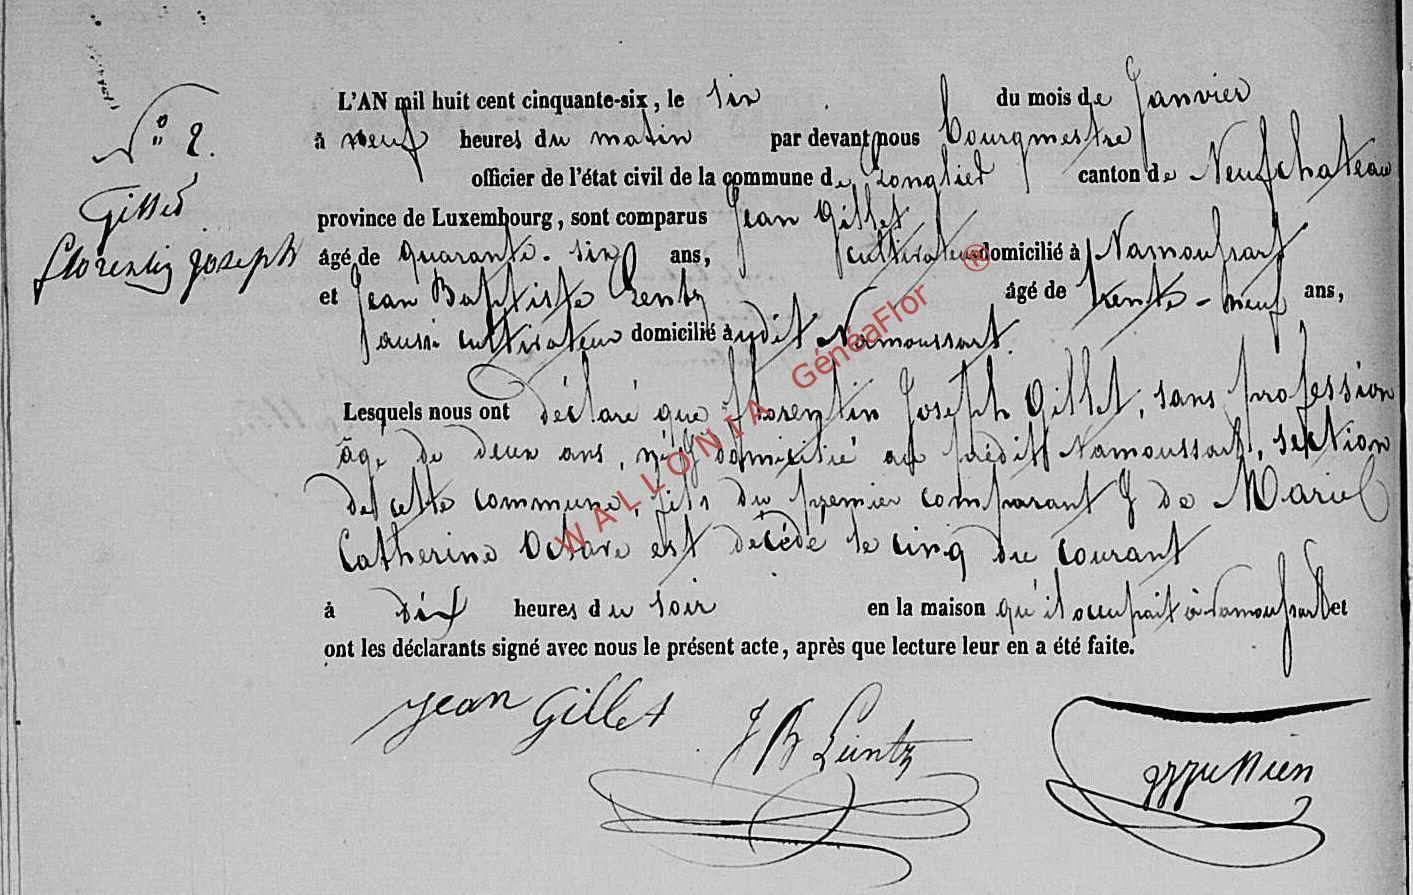 n° 2.
Gillet
florentin joseph
L'AN mil huit cent cinquante-six, le six du mois de Janvier
à neuf heures du matin par devant nous bourgmestre
officier de l'état civil de la commune de Longlier canton de Neufchateau
province de Luxembourg, sont comparus Jean Gillet
âgé de quarante-six ans, cultivateur domicilié à Namoussart
et Jean Baptiste Lentz âgé de trente-neuf ans,
aussi cultivateur domicilié audit Namoussart.
Lesquels nous ont déclaré que florentin Joseph Gillet, sans profession
âgé de deux ans, né & domicilié au prédit Namoussart, section
de cette commune, fils du premier comparant & de Marie
Catherine Octave est décédé le cinq du courant
à dix heures du soir en la maison qu'il occupait à Namoussart et
ont les déclarants signé avec nous le présent acte, après que lecture leur en a été faite.
Jean Gillet
J B Leintz
WALLONIA GénéaFlor ®